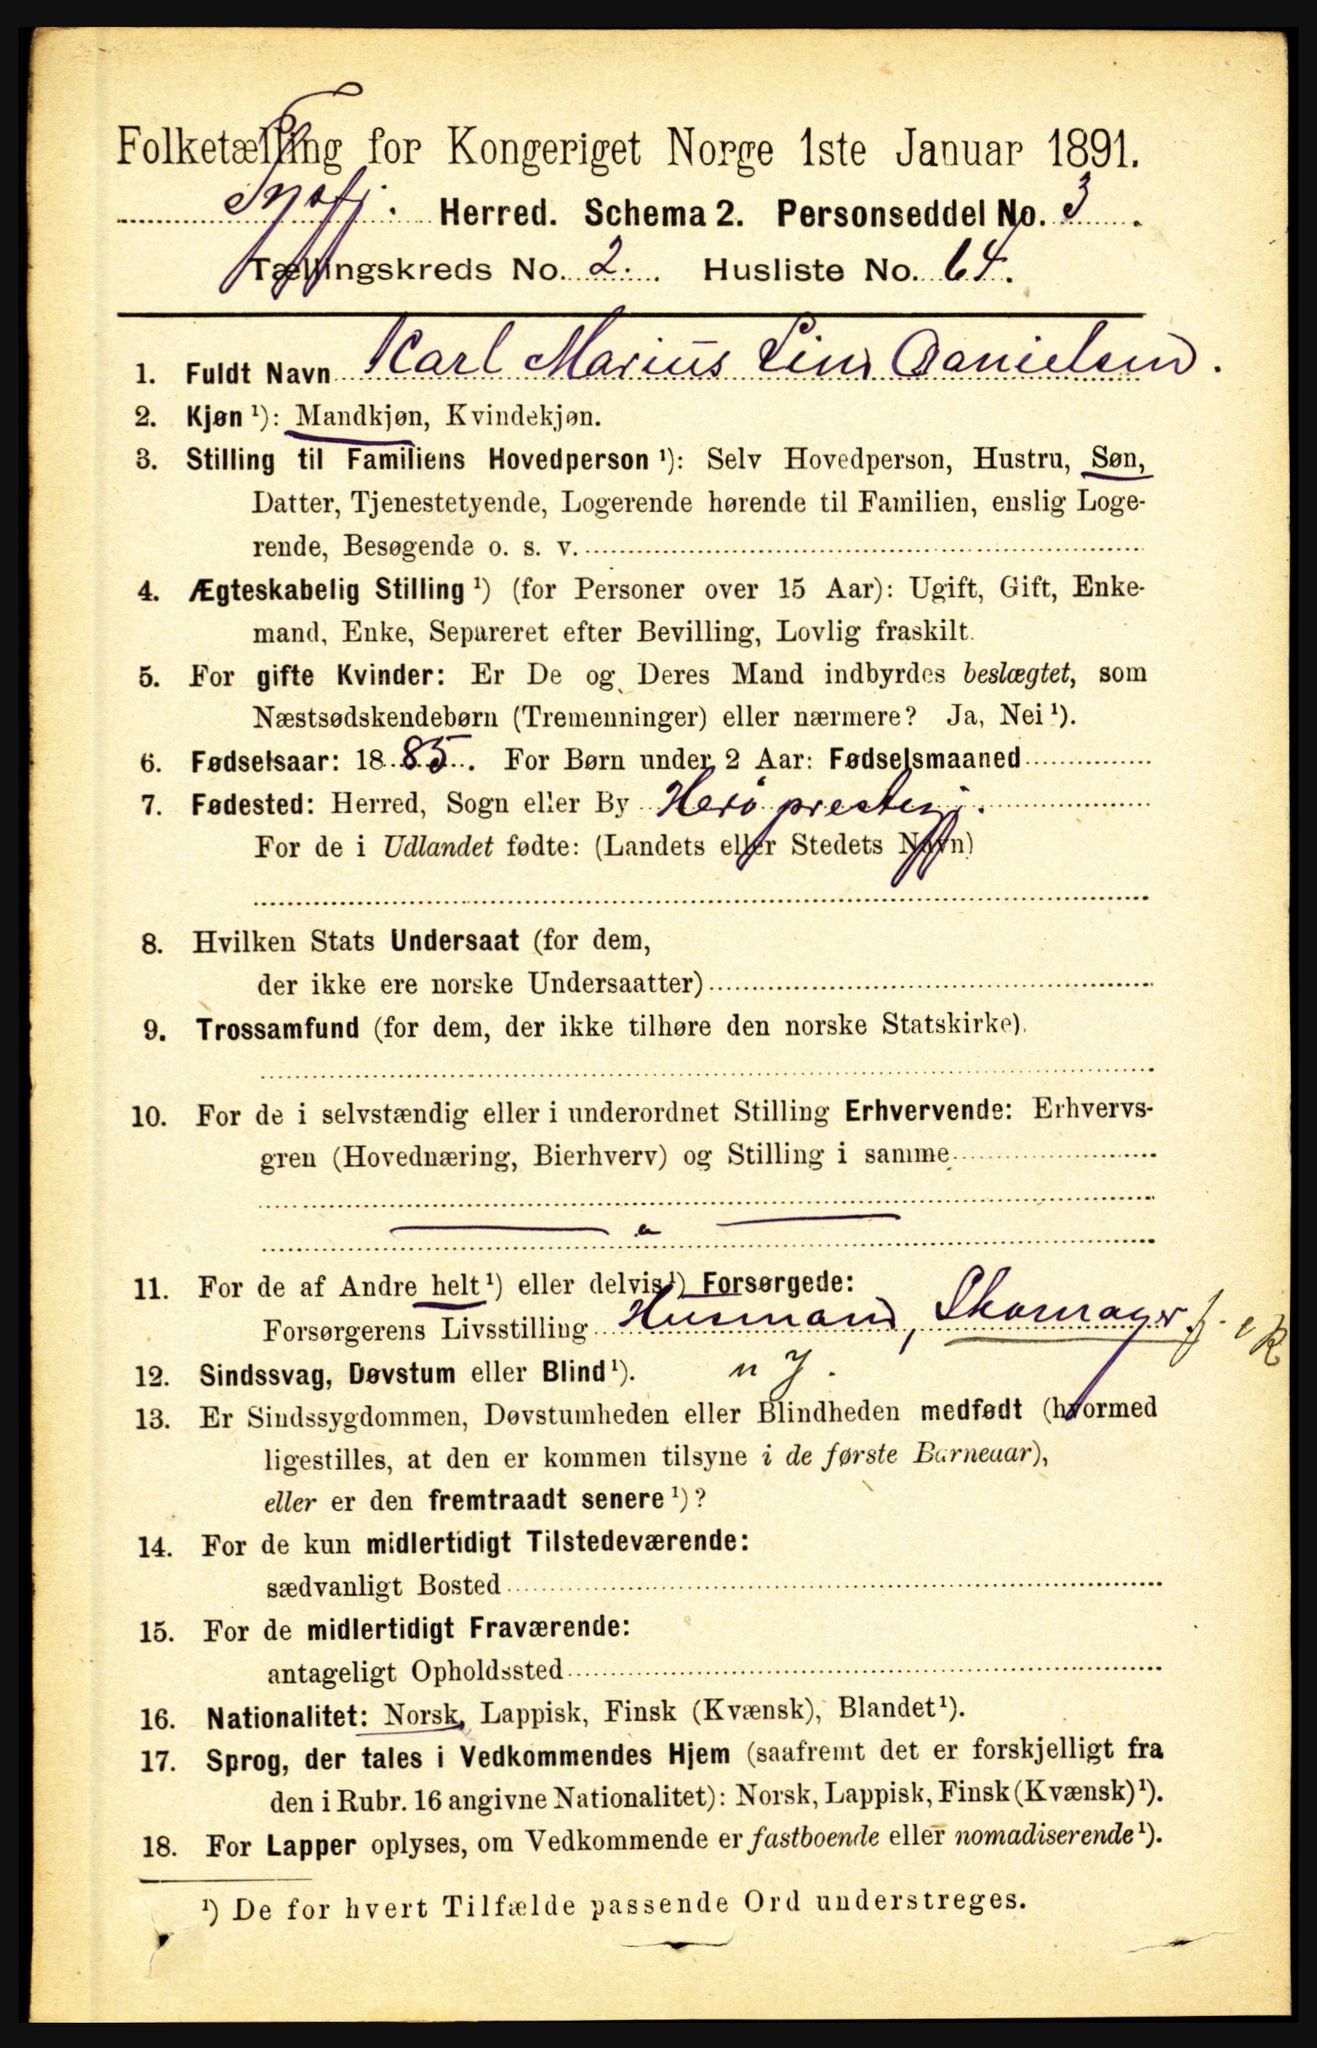 Folketælling for Kongeriget Norge 1ste Januar 1891.
Herred. Schema 2. Personseddel No. 3.
Tællingskreds No. 2. Husliste No. 64.
1. Fuldt Navn Karl Marius Danielsen.
2. Kjøn ¹): Mandkjøn, Kvindekjøn.
3. Stilling til Familiens Hovedperson ¹): Selv Hovedperson, Hustru, Søn,
Datter, Tjenestetyende, Logerende hørende til Familien, enslig Loge-
rende, Besøgende o. s. v.
4. Ægteskabelig Stilling ¹) (for Personer over 15 Aar): Ugift, Gift, Enke-
mand, Enke, Separeret efter Bevilling, Lovlig fraskilt.
5. For gifte Kvinder: Er De og Deres Mand indbyrdes beslægtet, som
Næstsødskendebørn (Tremenninger) eller nærmere? Ja, Nei ¹).
6. Fødselsaar: 1885. For Børn under 2 Aar: Fødselsmaaned
7. Fødested: Herred, Sogn eller By Herø prestegj.
For de i Udlandet fødte: (Landets eller Stedets Navn)
8. Hvilken Stats Undersaat (for dem,
der ikke ere norske Undersaatter)
9. Trossamfund (for dem, der ikke tilhøre den norske Statskirke).
10. For de i selvstændig eller i underordnet Stilling Erhvervende: Erhvervs-
gren (Hovednæring, Bierhverv) og Stilling i samme
11. For de af Andre helt ¹) eller delvis ¹) Forsørgede:
Forsørgerens Livsstilling Husmand, Skomager
12. Sindssvag, Døvstum eller Blind ¹).
13. Er Sindssygdommen, Døvstumheden eller Blindheden medfødt (hvormed
ligestilles, at den er kommen tilsyne i de første Barneaar),
eller er den fremtraadt senere ¹)?
14. For de kun midlertidigt Tilstedeværende:
sædvanligt Bosted
15. For de midlertidigt Fraværende:
antageligt Opholdssted
16. Nationalitet: Norsk, Lappisk, Finsk (Kvænsk), Blandet ¹).
17. Sprog, der tales i Vedkommendes Hjem (saafremt det er forskjelligt fra
den i Rubr. 16 angivne Nationalitet): Norsk, Lappisk, Finsk (Kvænsk) ¹).
18. For Lapper oplyses, om Vedkommende er fastboende eller nomadiserende ¹).
¹) De for hvert Tilfælde passende Ord understreges.